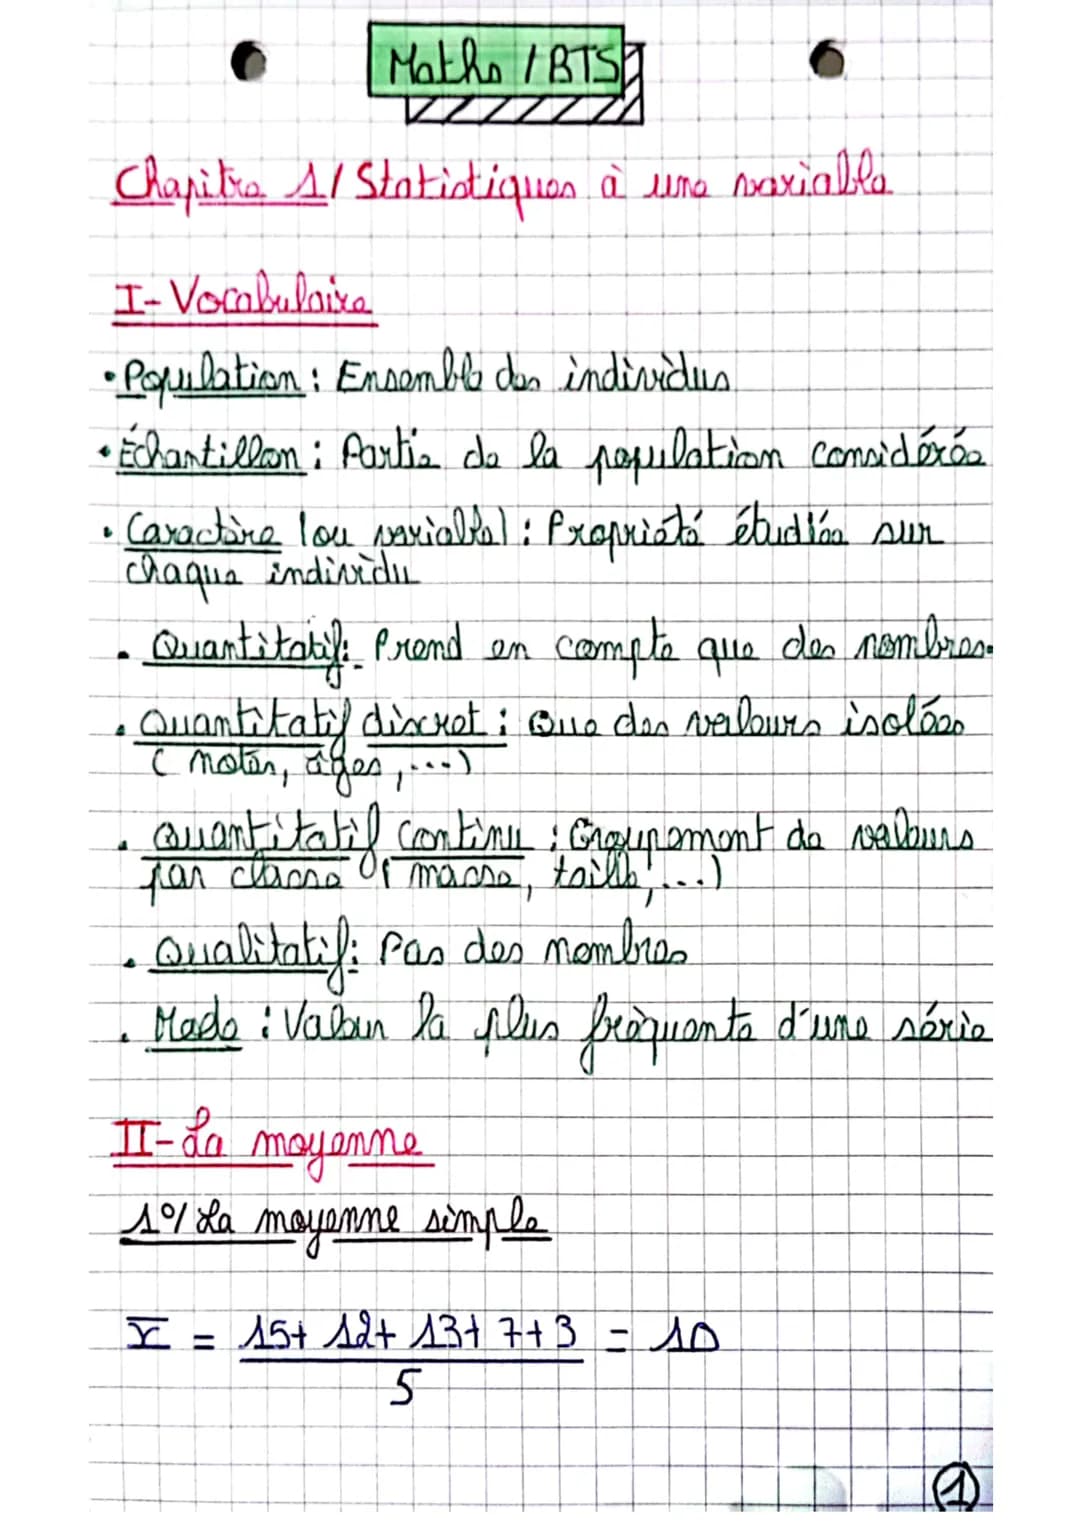 Maths / BTS
Chapitre 1/ Statistiques à une variable
I- Vocabulaire
• Population : Ensemble des individus
• Échantillon : Partie de la population considérée
• Caractère (ou variable) : Propriété étudiée sur
chaque individu
• Quantitatif : Prend en compte que des nombres.
• Quantitatif discret : Que des valeurs isolées
( notes, âges, ...)
• Quantitatif continu : Groupement de valeurs
par classe ( masse, taille, ...)
• Qualitatif : Pas des nombres
• Mode : Valeur la plus fréquente d'une série
II- La moyenne
1°/ La moyenne simple
x̄ = 15+ 12+ 13+ 7+ 3 = 10
5
1